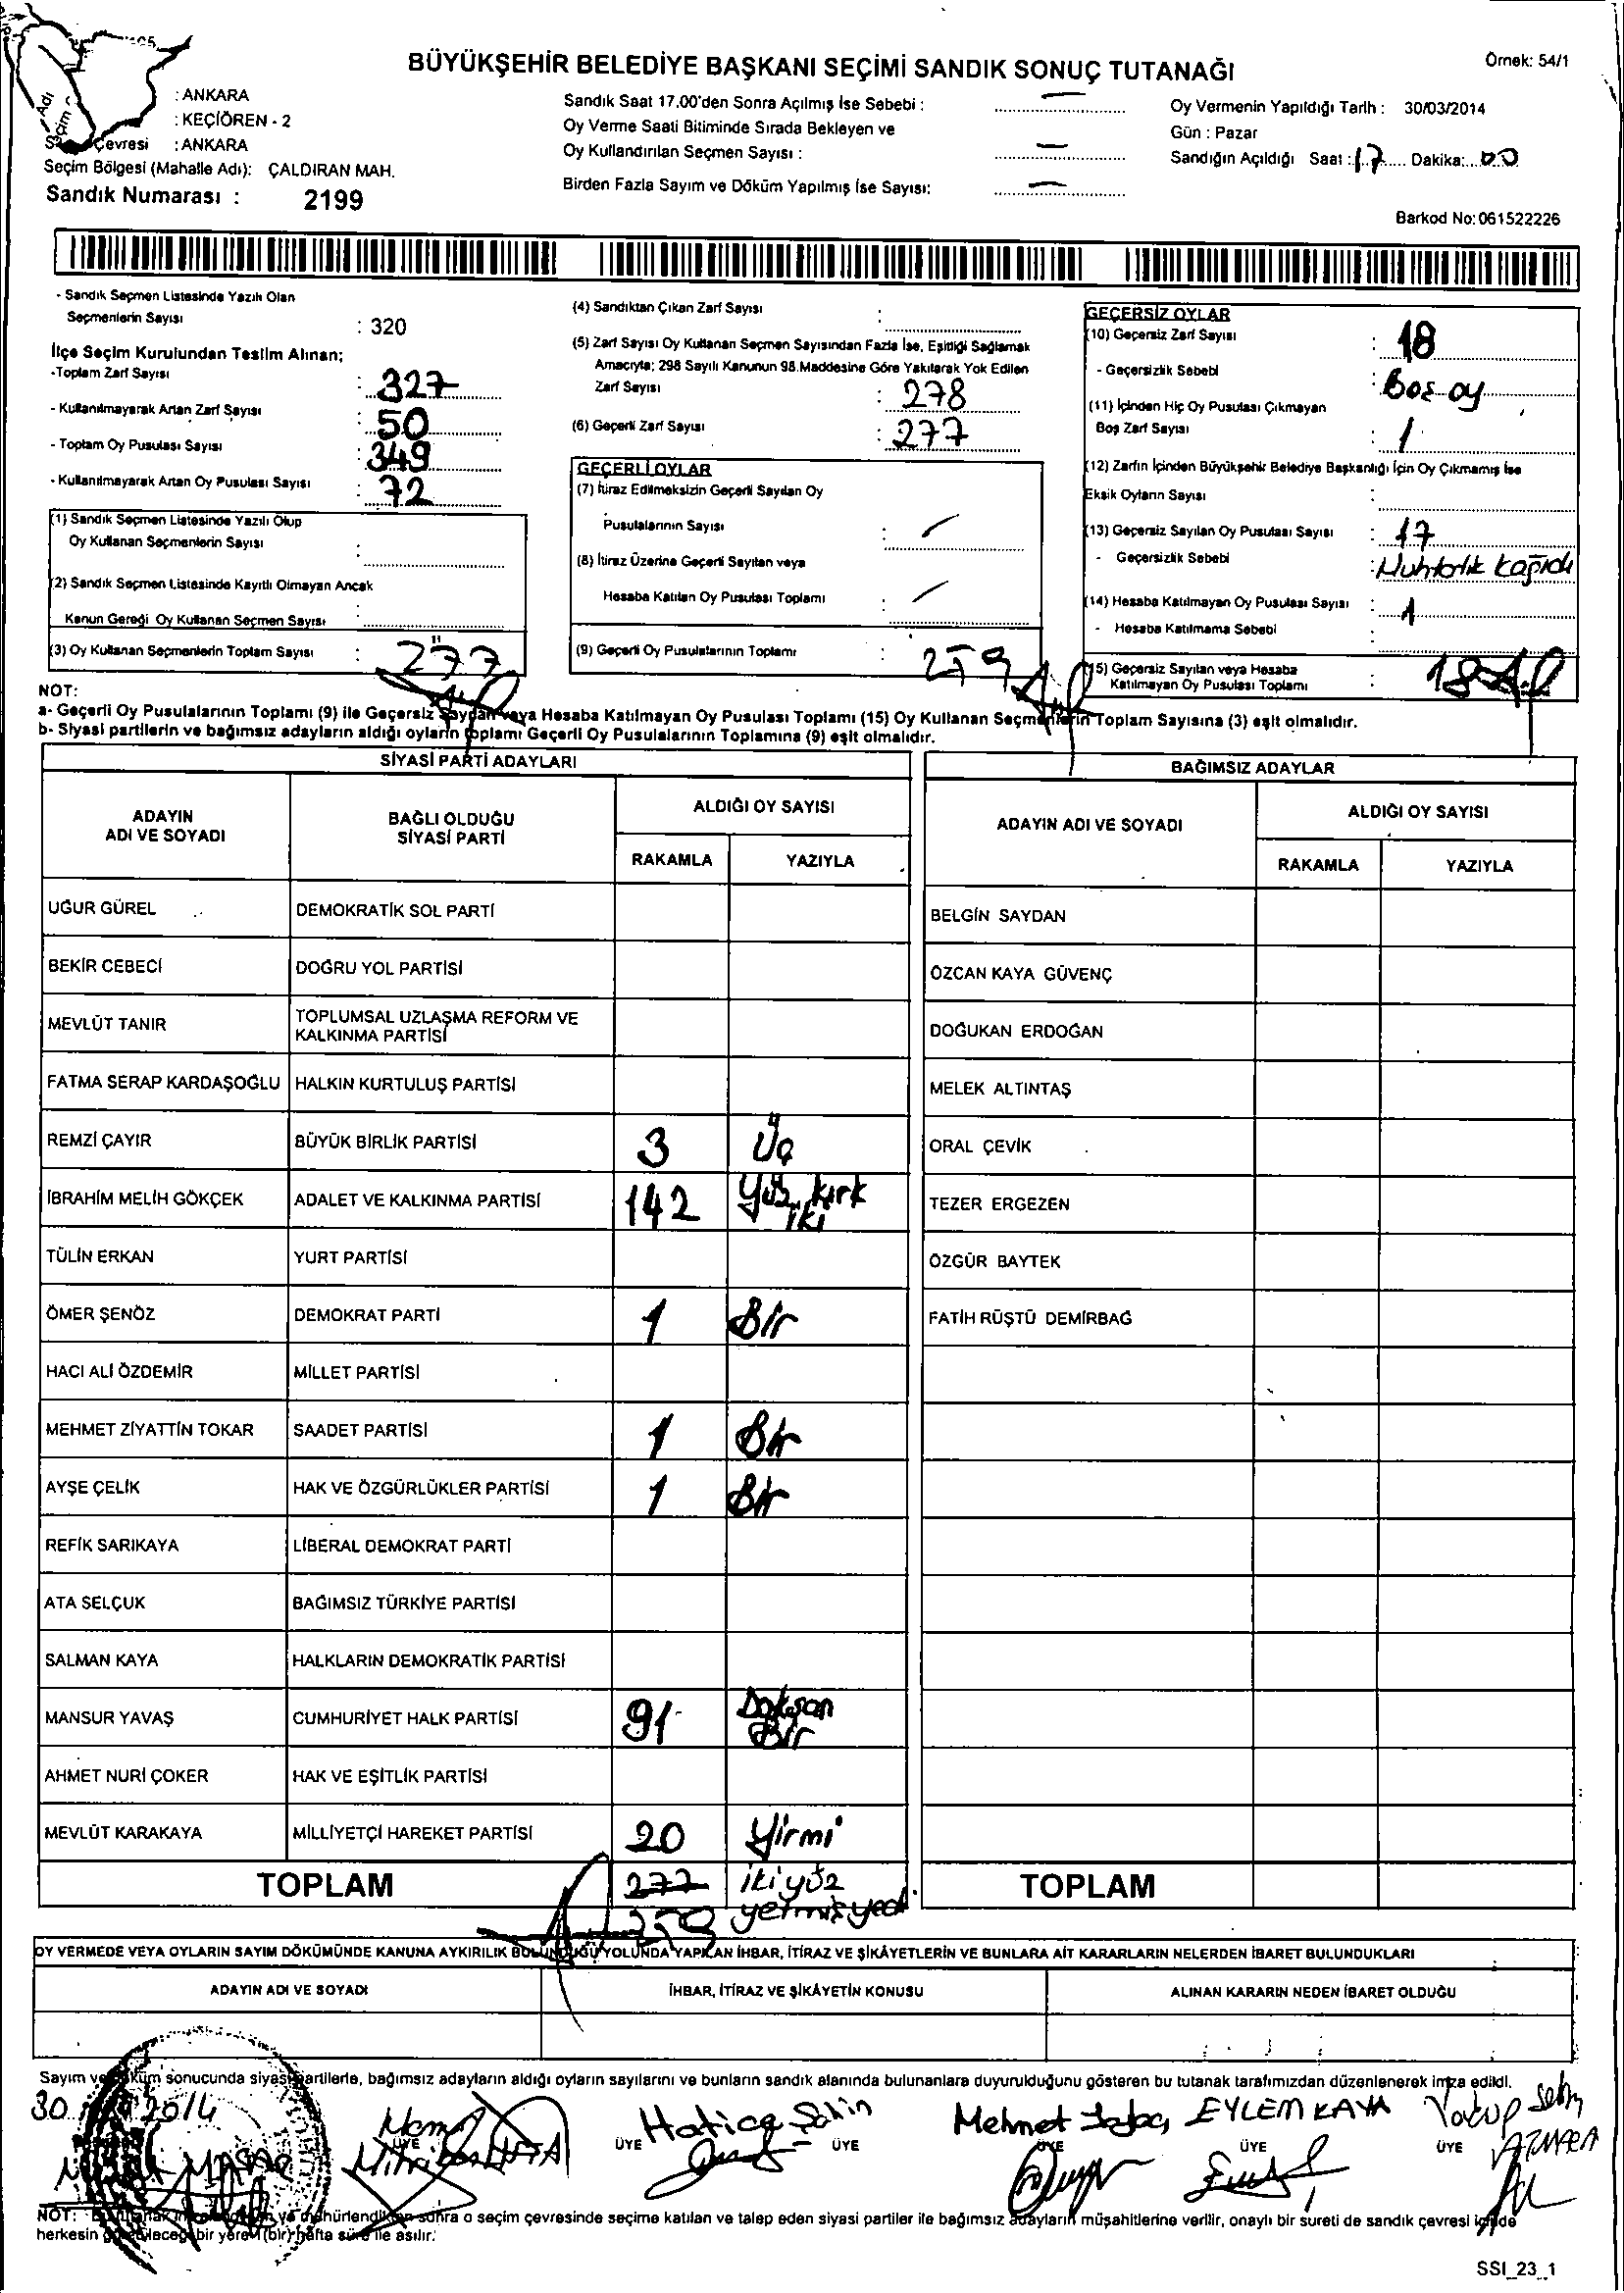 BÜYÜKŞEHİR BELEDİYE BAŞKANI SEÇİMİ SANDIK SONUÇ TUTANAĞI
Örnek: 54/1
: ANKARA
: KEÇİÖREN - 2
Çevresi : ANKARA
Seçim Bölgesi (Mahalle Adı): ÇALDIRAN MAH.
Sandık Numarası : 2199
Sandık Saat 17.00'den Sonra Açılmış İse Sebebi :
Oy Verme Saati Bitiminde Sırada Bekleyen ve
Oy Kullandırılan Seçmen Sayısı :
Birden Fazla Sayım ve Döküm Yapılmış İse Sayısı:
Oy Vermenin Yapıldığı Tarih : 30/03/2014
Gün : Pazar
Sandığın Açıldığı Saat : 17 Dakika: 00
Barkod No: 061522226
- Sandık Seçmen Listesinde Yazılı Olan
Seçmenlerin Sayısı : 320
İlçe Seçim Kurulundan Teslim Alınan;
-Toplam Zarf Sayısı : 327
- Kullanılmayarak Artan Zarf Sayısı : 50
- Toplam Oy Pusulası Sayısı : 349
- Kullanılmayarak Artan Oy Pusulası Sayısı : 72
(1) Sandık Seçmen Listesinde Yazılı Olup
Oy Kullanan Seçmenlerin Sayısı :
(2) Sandık Seçmen Listesinde Kayıtlı Olmayan Ancak
Kanun Gereği Oy Kullanan Seçmen Sayısı :
(3) Oy Kullanan Seçmenlerin Toplam Sayısı : 277
(4) Sandıktan Çıkan Zarf Sayısı :
(5) Zarf Sayısı Oy Kullanan Seçmen Sayısından Fazla İse, Eşitliği Sağlamak
Amacıyla; 298 Sayılı Kanunun 98.Maddesine Göre Yakılarak Yok Edilen
Zarf Sayısı : 278
(6) Geçerli Zarf Sayısı : 277
GEÇERLİ OYLAR
(7) İtiraz Edilmeksizin Geçerli Sayılan Oy
Pusulalarının Sayısı :
(8) İtiraz Üzerine Geçerli Sayılan veya
Hesaba Katılan Oy Pusulası Toplamı :
(9) Geçerli Oy Pusulalarının Toplamı : 259
GEÇERSİZ OYLAR
(10) Geçersiz Zarf Sayısı : 18
- Geçersizlik Sebebi : Boş oy
(11) İçinden Hiç Oy Pusulası Çıkmayan
Boş Zarf Sayısı : 1
(12) Zarfın İçinden Büyükşehir Belediye Başkanlığı İçin Oy Çıkmamış İse
Eksik Oyların Sayısı :
(13) Geçersiz Sayılan Oy Pusulası Sayısı : 17
- Geçersizlik Sebebi : Muhtarlık kağıdı
(14) Hesaba Katılmayan Oy Pusulası Sayısı : 1
- Hesaba Katılmama Sebebi :
(15) Geçersiz Sayılan veya Hesaba
Katılmayan Oy Pusulası Toplamı : 18
NOT:
a- Geçerli Oy Pusulalarının Toplamı (9) ile Geçersiz Sayılan veya Hesaba Katılmayan Oy Pusulası Toplamı (15) Oy Kullanan Seçmenlerin Toplam Sayısına (3) eşit olmalıdır.
b- Siyasi partilerin ve bağımsız adayların aldığı oyların toplamı Geçerli Oy Pusulalarının Toplamına (9) eşit olmalıdır.
SİYASİ PARTİ ADAYLARI
ADAYIN ADI VE SOYADI
BAĞLI OLDUĞU SİYASİ PARTİ
ALDIĞI OY SAYISI
RAKAMLA YAZIYLA
UĞUR GÜREL DEMOKRATİK SOL PARTİ
BEKİR CEBECİ DOĞRU YOL PARTİSİ
MEVLÜT TANIR TOPLUMSAL UZLAŞMA REFORM VE KALKINMA PARTİSİ
FATMA SERAP KARDAŞOĞLU HALKIN KURTULUŞ PARTİSİ
REMZİ ÇAYIR BÜYÜK BİRLİK PARTİSİ 3 Üç
İBRAHİM MELİH GÖKÇEK ADALET VE KALKINMA PARTİSİ 142 Yüz kırk iki
TÜLİN ERKAN YURT PARTİSİ
ÖMER ŞENÖZ DEMOKRAT PARTİ 1 Bir
HACI ALİ ÖZDEMİR MİLLET PARTİSİ
MEHMET ZİYATTİN TOKAR SAADET PARTİSİ 1 Bir
AYŞE ÇELİK HAK VE ÖZGÜRLÜKLER PARTİSİ 1 Bir
REFİK SARIKAYA LİBERAL DEMOKRAT PARTİ
ATA SELÇUK BAĞIMSIZ TÜRKİYE PARTİSİ
SALMAN KAYA HALKLARIN DEMOKRATİK PARTİSİ
MANSUR YAVAŞ CUMHURİYET HALK PARTİSİ 91 Doksan Bir
AHMET NURİ ÇOKER HAK VE EŞİTLİK PARTİSİ
MEVLÜT KARAKAYA MİLLİYETÇİ HAREKET PARTİSİ 20 Yirmi
TOPLAM 277 ikiyüz yetmişyedi
259
BAĞIMSIZ ADAYLAR
ADAYIN ADI VE SOYADI
ALDIĞI OY SAYISI
RAKAMLA YAZIYLA
BELGİN SAYDAN
ÖZCAN KAYA GÜVENÇ
DOĞUKAN ERDOĞAN
MELEK ALTINTAŞ
ORAL ÇEVİK
TEZER ERGEZEN
ÖZGÜR BAYTEK
FATİH RÜŞTÜ DEMİRBAĞ
TOPLAM
OY VERMEDE VEYA OYLARIN SAYIM DÖKÜMÜNDE KANUNA AYKIRILIK BULUNDUĞU YOLUNDA YAPILAN İHBAR, İTİRAZ VE ŞİKÂYETLERİN VE BUNLARA AİT KARARLARIN NELERDEN İBARET BULUNDUKLARI
ADAYIN ADI VE SOYADI
İHBAR, İTİRAZ VE ŞİKÂYETİN KONUSU
ALINAN KARARIN NEDEN İBARET OLDUĞU
Sayım ve döküm sonucunda siyasi partilerle, bağımsız adayların aldığı oyların sayılarını ve bunların sandık alanında bulunanlara duyurulduğunu gösteren bu tutanak tarafımızdan düzenlenerek imza edildi.
30 2014
Hatice Şahin
Mehmet
EYLEM KAYA
Yakup
ÜYE ÜYE ÜYE ÜYE ÜYE ÜYE
NOT: sonra o seçim çevresinde seçime katılan ve talep eden siyasi partiler ile bağımsız adayların müşahitlerine verilir, onaylı bir sureti de sandık çevresi içinde
herkesin görebileceği bir yere (bir) hafta süre ile asılır.
SSI_23_1